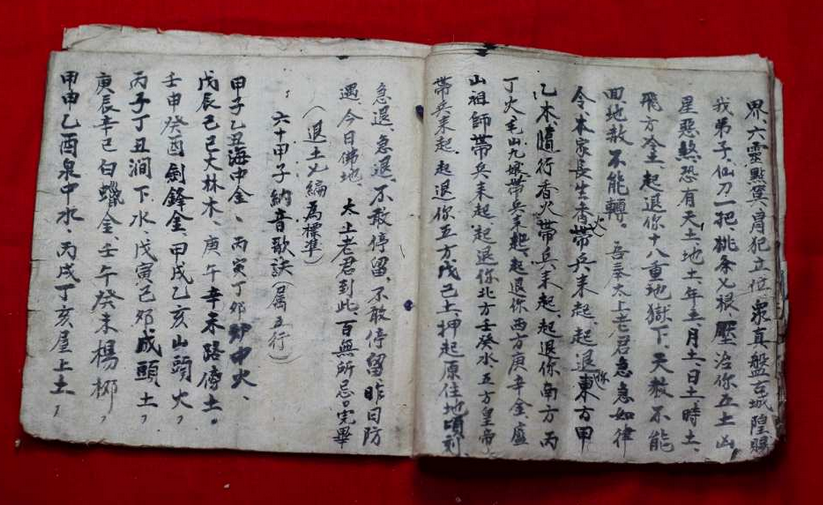 界六靈點冀冒犯立位衆真盤古城隍賜
我弟子仙刀一把桃条七根壓治你五土凶
星惡煞恐有天土、地土、年土、月土、日土、時土、
飛方冷土、起退你十八重地獄下、天赦不能
回地赦不能轉。吾奉太上老君急急如律
令本家長生香火帶兵來起起退你東方甲
乙木、隨行香火帶兵來起、起退你南方丙
丁火毛山九娘帶兵來起、起退你西方庚辛金、廬
山祖師帶兵來起起退你北方壬癸水五方皇帝
帶兵來起、起退你五方戊己土、押起原住地頃刻
急退、急退、不敢停留、不敢停留昨日防
遇、今日佛地 太上老君到此、百無所忌、完畢
（退土七編為標準）
六十甲子納音歌訣（屬五行）
甲子乙丑海中金、丙寅丁卯炉中火、
戊辰己巳大林木、庚午辛未路傍土。
壬申癸酉劍鋒金、甲戌乙亥山頭火，
丙子丁丑澗下水、戊寅己卯成頭土，
庚辰辛巳白蠟金、壬午癸未楊柳，
甲申乙酉泉中水、丙戌丁亥屋上土，